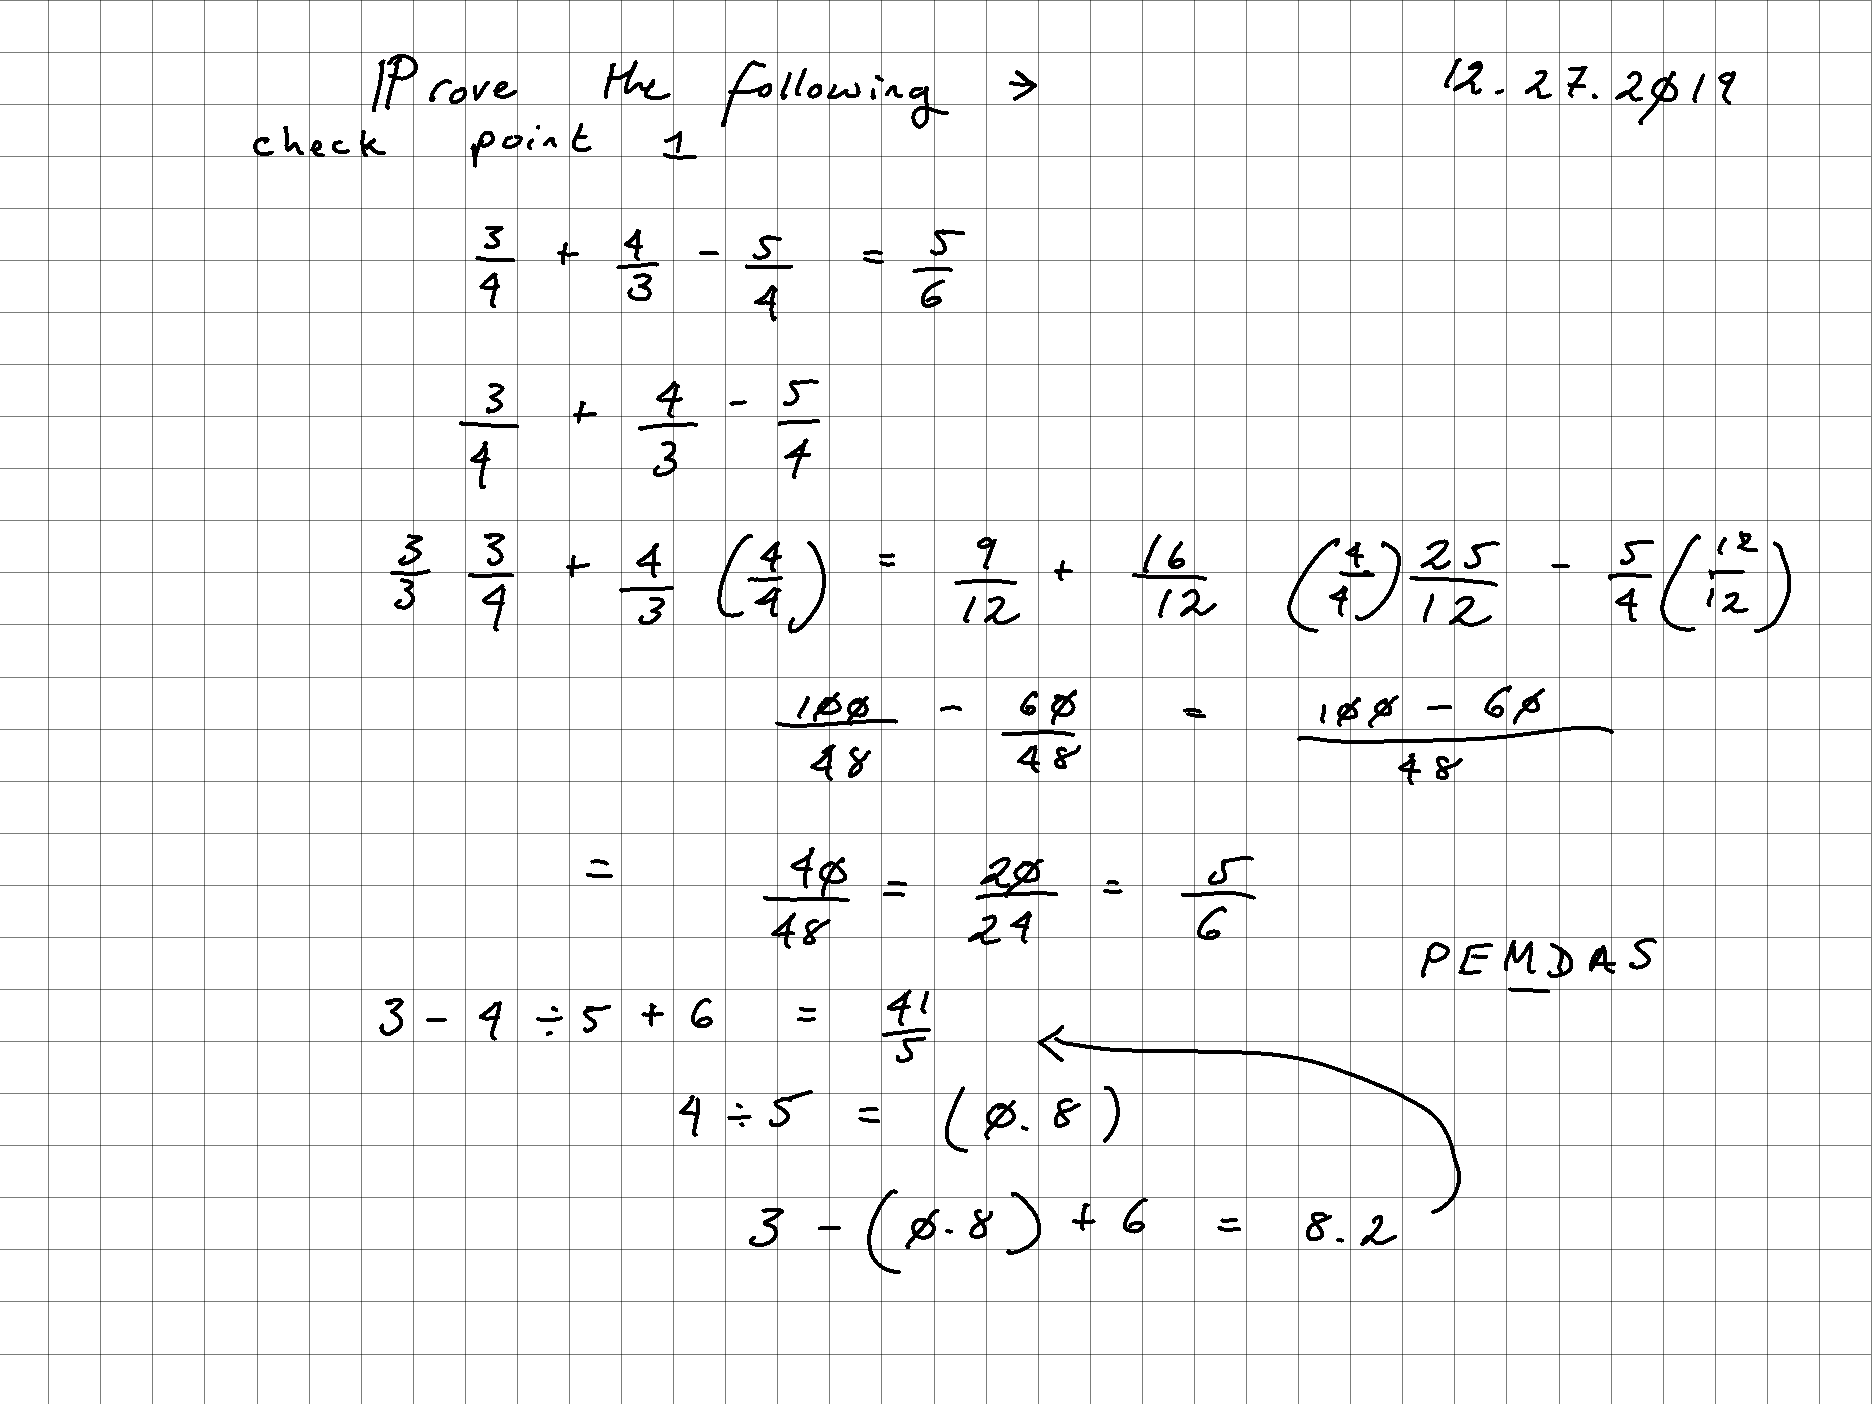 Prove the following → 12.27.2019
check point 1
3/4 + 4/3 - 5/4 = 5/6
3/4 + 4/3 - 5/4
3/3 3/4 + 4/3 (4/4) = 9/12 + 16/12 (4/4) 25/12 - 5/4 (12/12)
100/48 - 60/48 = (100 - 60)/48
= 40/48 = 20/24 = 5/6
PEMDAS
3 - 4 ÷ 5 + 6 = 41/5
4 ÷ 5 = (0.8)
3 - (0.8) + 6 = 8.2